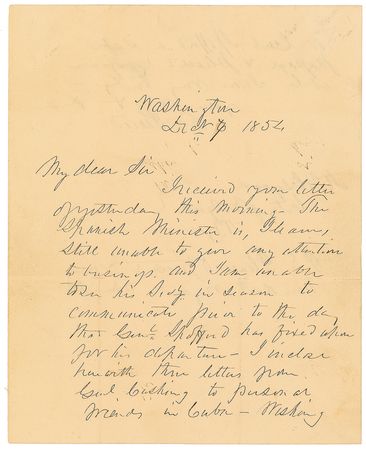 Washington
Dec 6 1854
My dear Sir
I received your letter
of yesterday this morning - The
Spanish Minister is, I learn,
still unable to give any attention
to business and I am unable
to see his Secy in season to
communicate prior to the day
that Genl. Spofford has fixed upon
for his departure - I inclose
herewith three letters from
Genl. Cushing to personal
friends in Cuba - Wishing